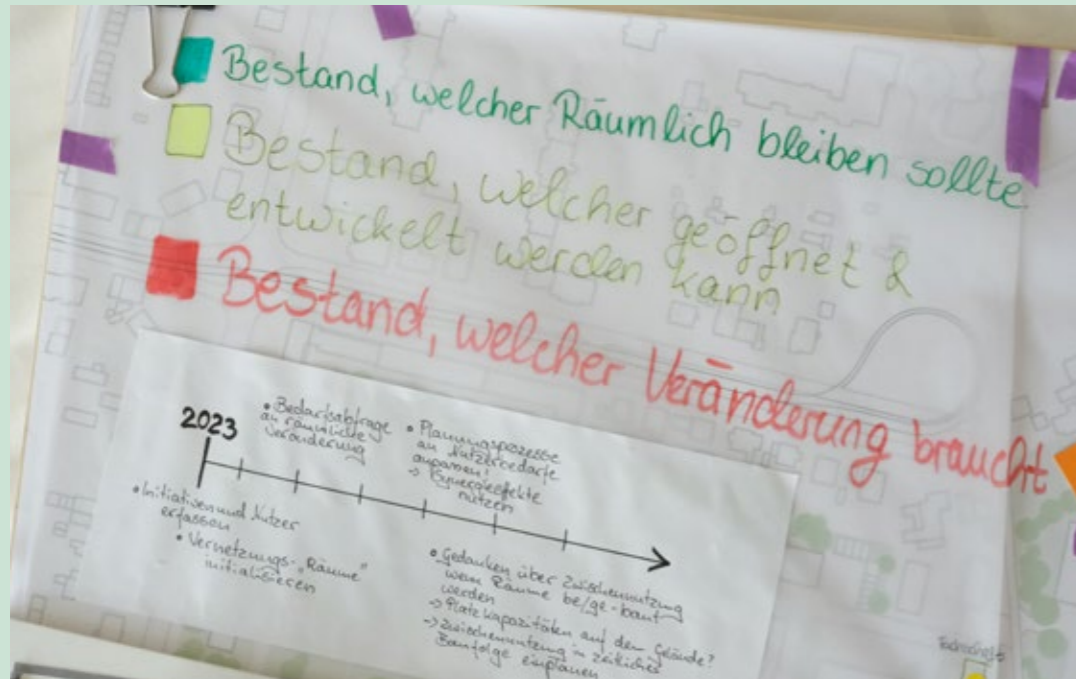 Bestand, welcher Räumlich bleiben sollte
Bestand, welcher geöffnet &
entwickelt werden kann
Bestand, welcher Veränderung braucht
2023
• Bedarfsabfrage
an räumliche
Veränderung
• Planungsprozesse
an Nutzerbedarfe
anpassen!
→ Synergieeffekte
nutzen
• Initiativen und Nutzer
erfassen
• Vernetzungs-„Räume“
initialisieren
• Gedanken über Zwischennutzung
wenn Räume be/ge-baut
werden
→ Platzkapazitäten auf dem Gelände?
→ Zwischennutzung in zeitlicher
Baufolge einplanen